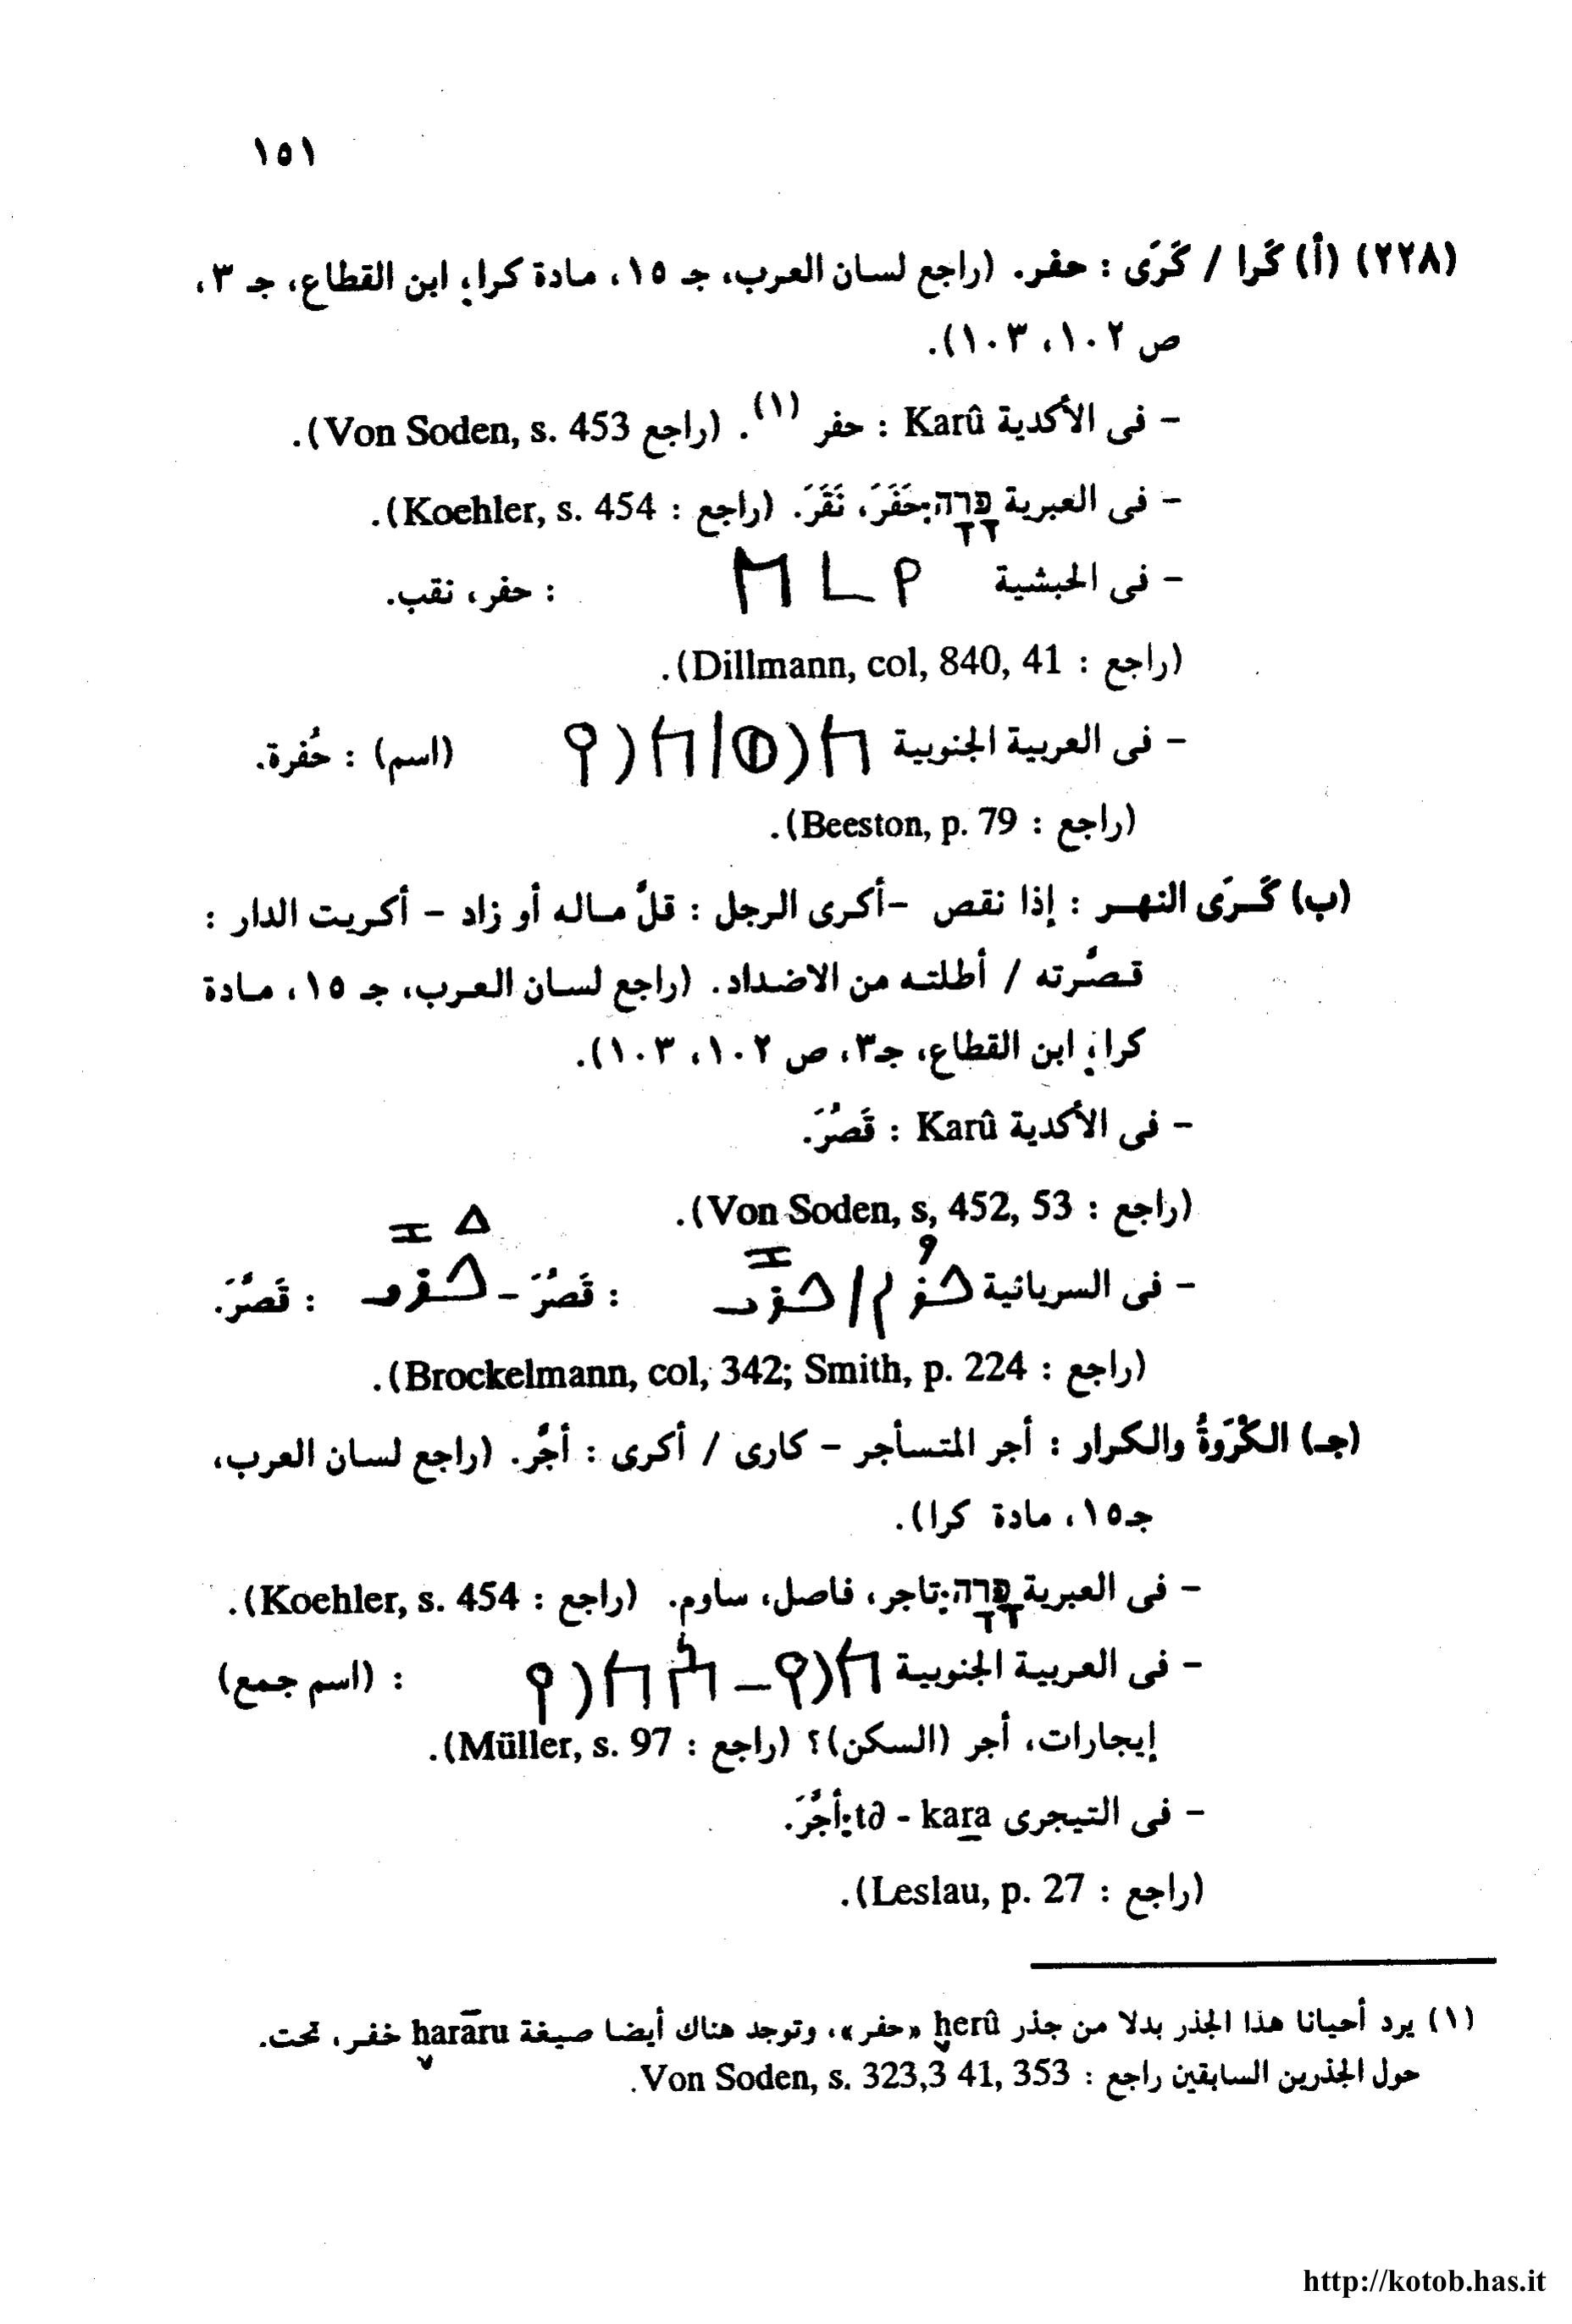 ١٥١
(٢٢٨) (أ) كَرا / كَرَى : حفر. (راجع لسان العرب، جـ ١٥، مادة كرا؛ ابن القطاع، جـ ٣،
ص ١٠٢، ١٠٣).
- فى الأكدية Karû : حفر (١). (راجع Von Soden, s. 453).
- فى العبرية כָּרָה: حَفَرَ، نَقَرَ. (راجع : Koehler, s. 454).
- فى الحبشية : حفر، نقب.
(راجع : Dillmann, col, 840, 41).
- فى العربية الجنوبية 𐩫𐩧𐩥/𐩫𐩧𐩺 (اسم) : حُفرة.
(راجع : Beeston, p. 79).
(ب) كَـرَى النهـر : إذا نقص -أكرى الرجل : قلّ مـاله أو زاد - أكريت الدار :
قـصَّرته / أطلتـه من الاضداد. (راجع لسان العرب، جـ ١٥، مـادة
كرا؛ ابن القطاع، جـ٣، ص ١٠٢، ١٠٣).
- فى الأكدية Karû : قَصُرَ.
(راجع : Von Soden, s, 452, 53).
- فى السريانية : قَصُرَ - : قَصَّرَ.
(راجع : Brockelmann, col, 342; Smith, p. 224).
(جـ) الكَرْوَةُ والكرار : أجر المتسأجر - كارى / أكرى : أجَّر. (راجع لسان العرب،
جـ١٥، مادة كرا).
- فى العبرية כָּרָה: تاجر، فاصل، ساوم. (راجع : Koehler, s. 454).
- فى العربية الجنوبية : (اسم جمع)
إيجارات، أجر (السكن)؟ (راجع : Müller, s. 97).
- فى التيجرى tǝ - kara: أجَّرَ.
(راجع : Leslau, p. 27).
(١) يرد أحيانا هذا الجذر بدلا من جذر ḫerû «حفر»، وتوجد هناك أيضا صيغة ḫarāru خفـر، تحت.
حول الجذرين السابقين راجع : Von Soden, s. 323,3 41, 353.
http://kotob.has.it